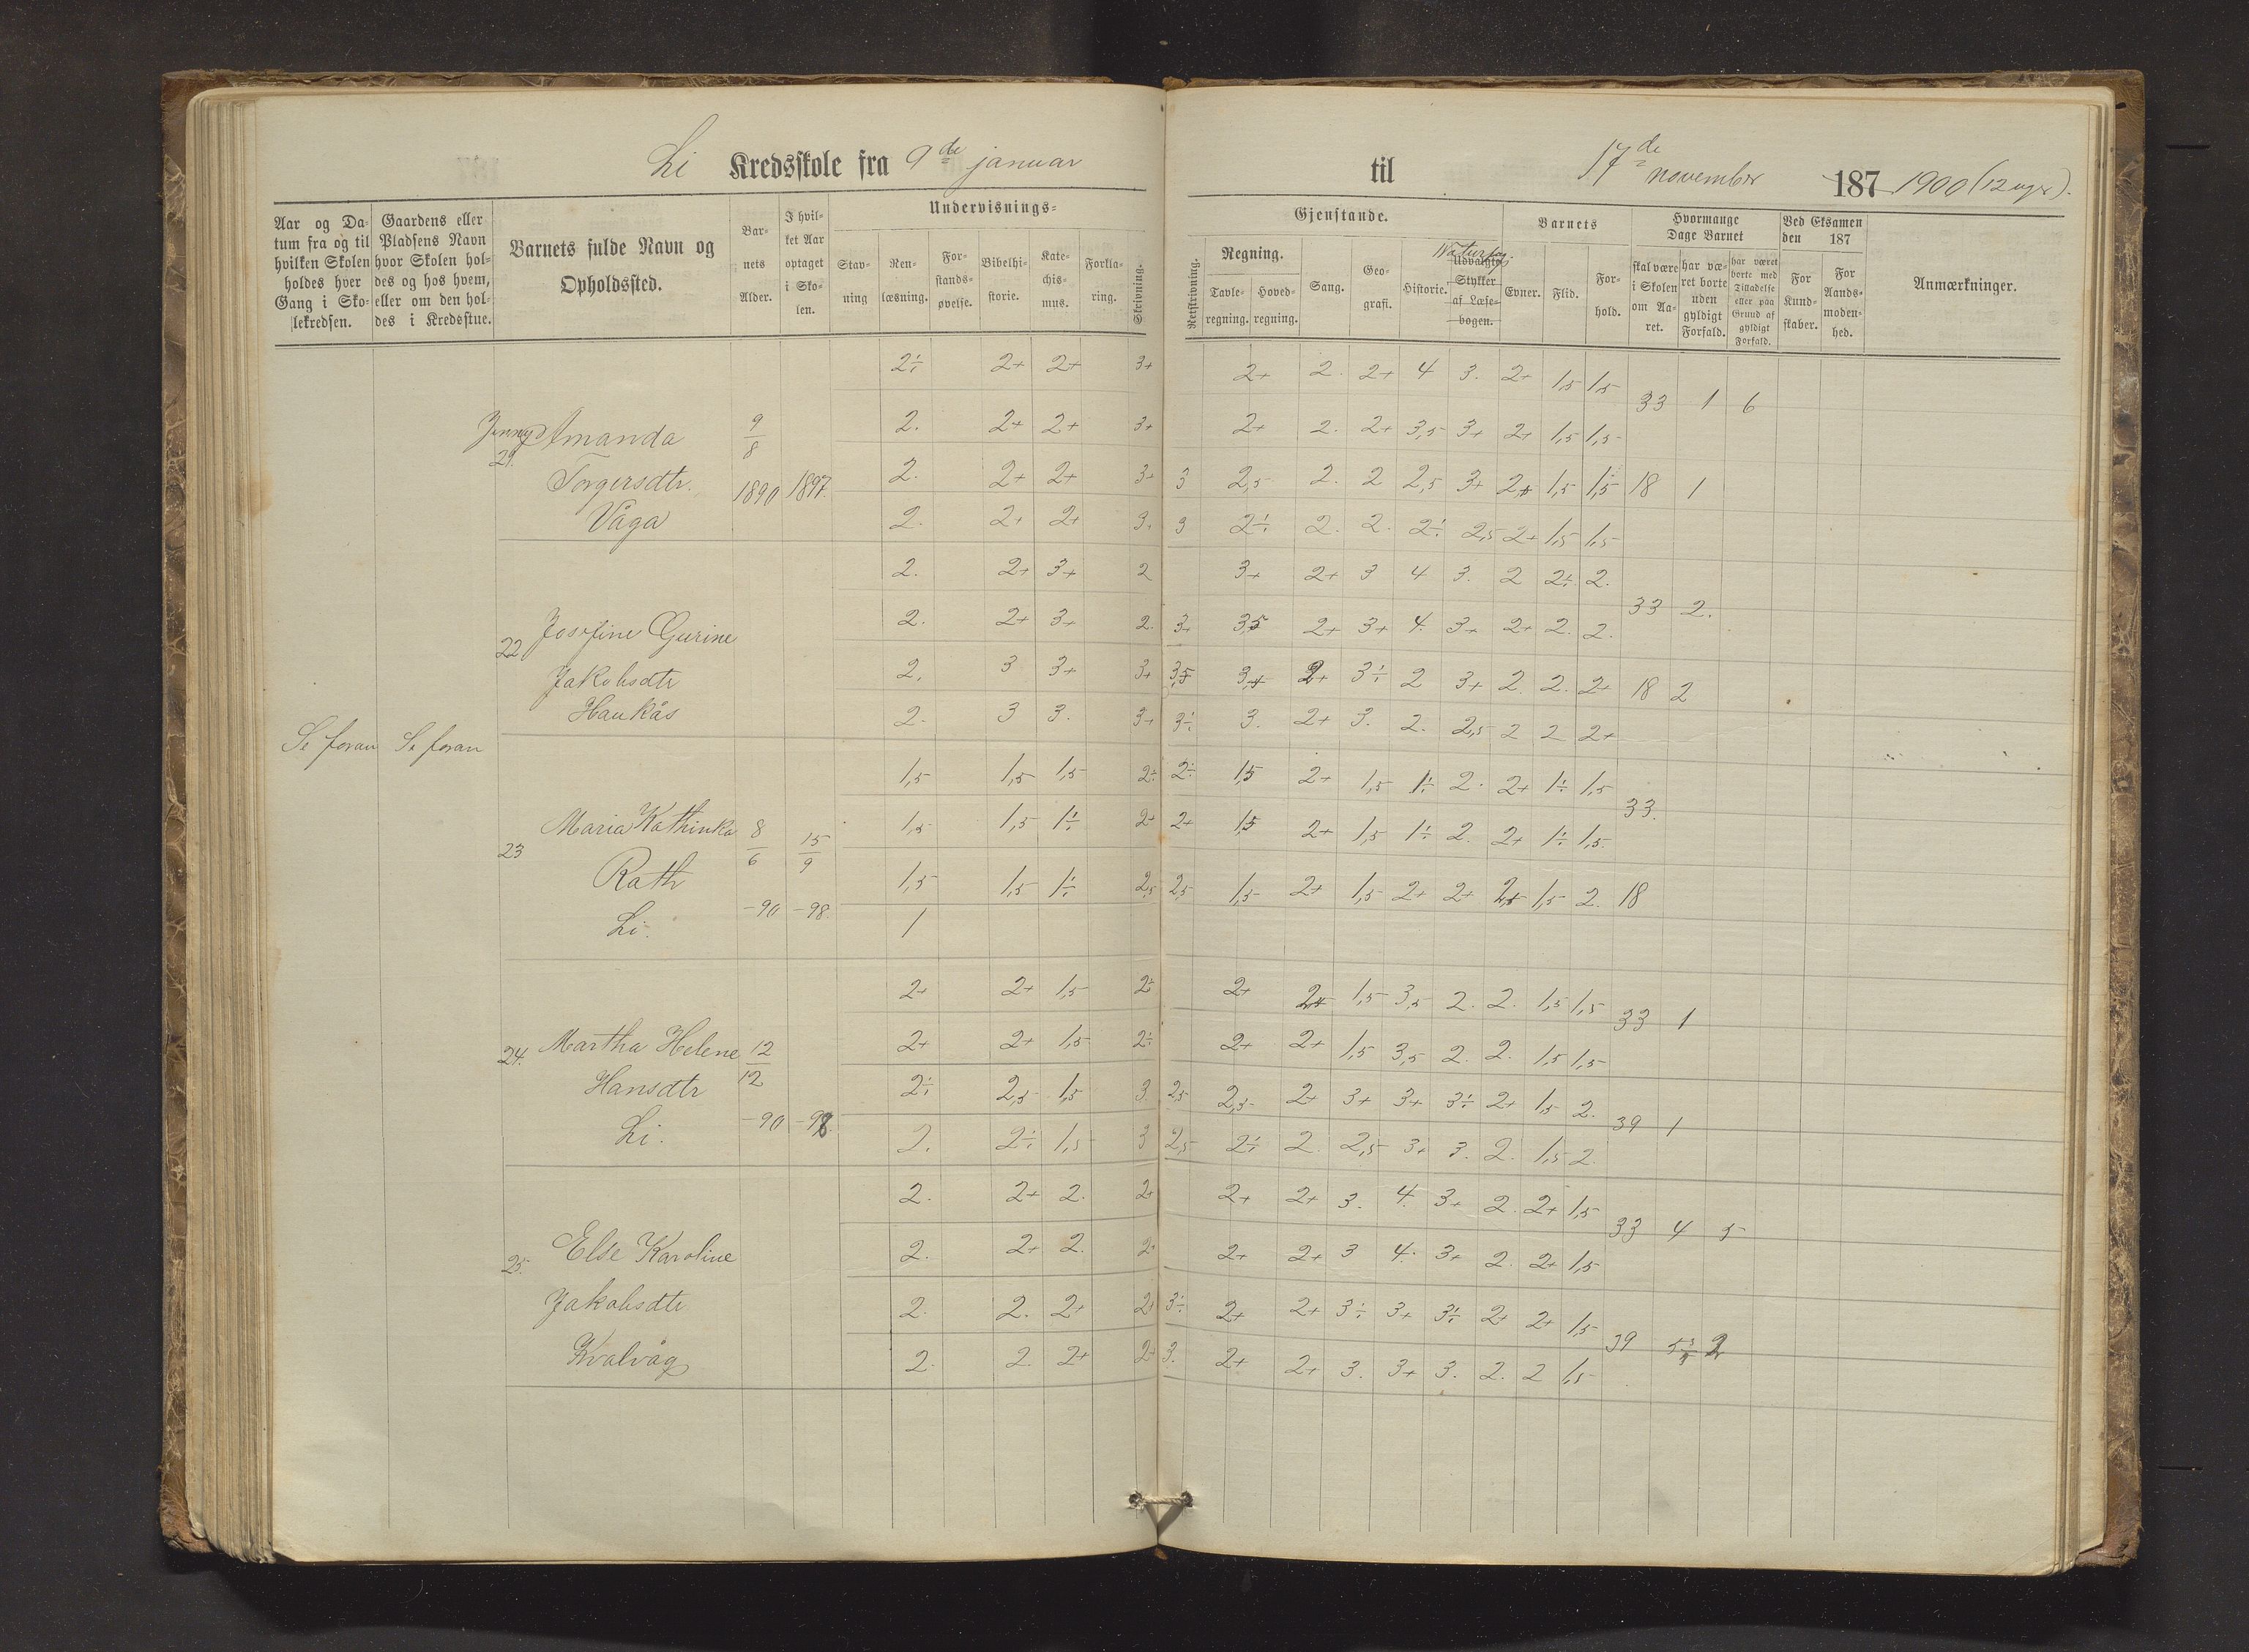 Li Kredsskole fra 9de januar
til 17de november 187 1900 (12 uger).
Aar og Da-
tum fra og til
hvilken Skolen
holdes hver
Gang i Sko-
lekredsen.
Gaardens eller
Pladsens Navn
hvor Skolen hol-
des og hos hvem,
eller om den hol-
des i Kredsstue.
Barnets fulde Navn og
Opholdssted.
Bar-
nets
Alder.
I hvil-
ket Aar
optaget
i Sko-
len.
Undervisnings-
Stav-
ning
Ren-
læsning.
For-
stands-
øvelse.
Bibelhi-
storie.
Kate-
chis-
mus.
Forkla-
ring.
Skrivning.
Gjenstande.
Retskrivning.
Regning.
Tavle-
regning.
Hoved-
regning.
Sang.
Geo-
grafi.
Historie.
Naturfag.
Udvalgte
Stykker
af Læse-
bogen.
Barnets
Evner.
Flid.
For-
hold.
Hvormange
Dage Barnet
skal være
i Skolen
om Aa-
ret.
har væ-
ret borte
uden
gyldigt
Forfald.
har været
borte med
Tilladelse
eller paa
Grund af
gyldigt
Forfald.
Ved Eksamen
den 187
For
Kund-
skaber.
For
Aands-
moden-
hed.
Anmærkninger.
Se foran Se foran
2÷ 2+ 2+ 3+ 2+ 2. 2+ 4 3. 2+ 1,5 1,5
33 1 6
Jenny Amanda 9/8
2. 2+ 2+ 3+ 2+ 2. 2+ 3,5 3+ 2+ 1,5 1,5
21.
Torgersdtr. 1890 1897.
2. 2+ 2+ 3+ 3 2,5 2. 2 2,5 3+ 1,5 1,5 18 1
Våga
2. 2+ 2+ 3+ 3 2÷ 2. 2. 2÷ 2,5 2+ 1,5 1,5
2. 2+ 3+ 2 3+ 2+ 3 4 3. 2 2÷ 2.
33 2.
22 Josefine Gurine
2. 2+ 3+ 2. 3+ 3,5 2+ 3+ 4. 3+ 2+ 2. 2.
Jakobsdtr
2. 3 3+ 3+ 3,5 2+ 3÷ 2 3+ 2. 2. 2+ 18 2
Haukås
2. 3 3. 3+ 3÷ 3. 2+ 3. 2. 2,5 2 2 2+
1,5 1,5 1,5 2÷ 2÷ 1,5 2+ 1,5 1÷ 2. 2+ 1÷ 1,5
33.
23 Maria Kathinka 8/6 15/9
1,5 1,5 1÷ 2+ 2+ 1,5 2+ 1,5 1÷ 2. 2+ 1÷ 1,5.
Rath
1,5 1,5 1÷ 2,5 2,5 1,5 2+ 1,5 2+ 2+ 1,5 2. 18
Li. -90 -98
1
2+ 2+ 1,5 2÷ 2+ 1,5 3,5 2. 2. 1,5 1,5
33 1
24. Martha Helene 12/12
2+ 2+ 1,5 2÷ 2+ 2+ 1,5 3,5 2. 2. 1,5 1,5
Hansdtr
2÷ 2,5 1,5 3 2,5 2,5 2+ 3+ 3+ 3÷ 2+ 1,5 2.
39 1
Li. -90 -98.
2÷ 1,5 3 2,5 2÷ 2. 2,5 3+ 3. 2. 1,5 2.
2. 2+ 2. 2+ 2+ 2+ 3. 4. 3+ 2. 2+ 1,5
33 4 5
25. Else Karoline
2. 2+ 2. 2+ 2+ 2+ 3 4. 3+ 2. 2+ 1,5
Jakobsdtr
2. 2. 2+ 2+ 3÷ 2+ 2+ 3÷ 3+ 3÷ 2+ 2+ 1,5
39 2
Kvalvåg
2. 2. 2+ 2+ 3. 2+ 2+ 3. 3+ 3. 2. 2 1,5